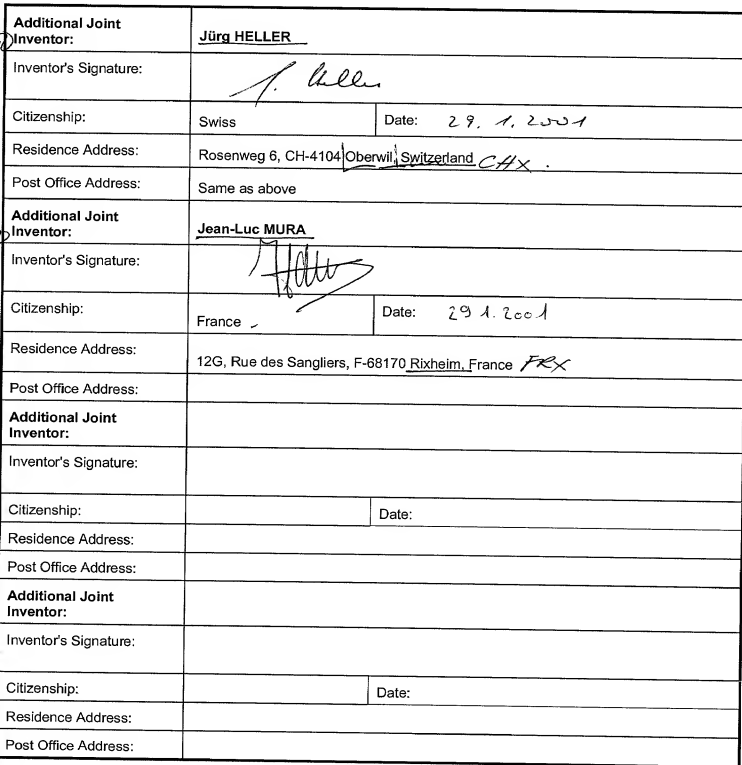 Additional Joint
Inventor: Jürg HELLER
Inventor's Signature: J. Heller
Citizenship: Swiss Date: 29. 1. 2001
Residence Address: Rosenweg 6, CH-4104 Oberwil, Switzerland CHX.
Post Office Address: Same as above
Additional Joint
Inventor: Jean-Luc MURA
Inventor's Signature:
Citizenship: France Date: 29 1. 2001
Residence Address: 12G, Rue des Sangliers, F-68170 Rixheim, France FRX
Post Office Address:
Additional Joint
Inventor:
Inventor's Signature:
Citizenship: Date:
Residence Address:
Post Office Address:
Additional Joint
Inventor:
Inventor's Signature:
Citizenship: Date:
Residence Address:
Post Office Address: